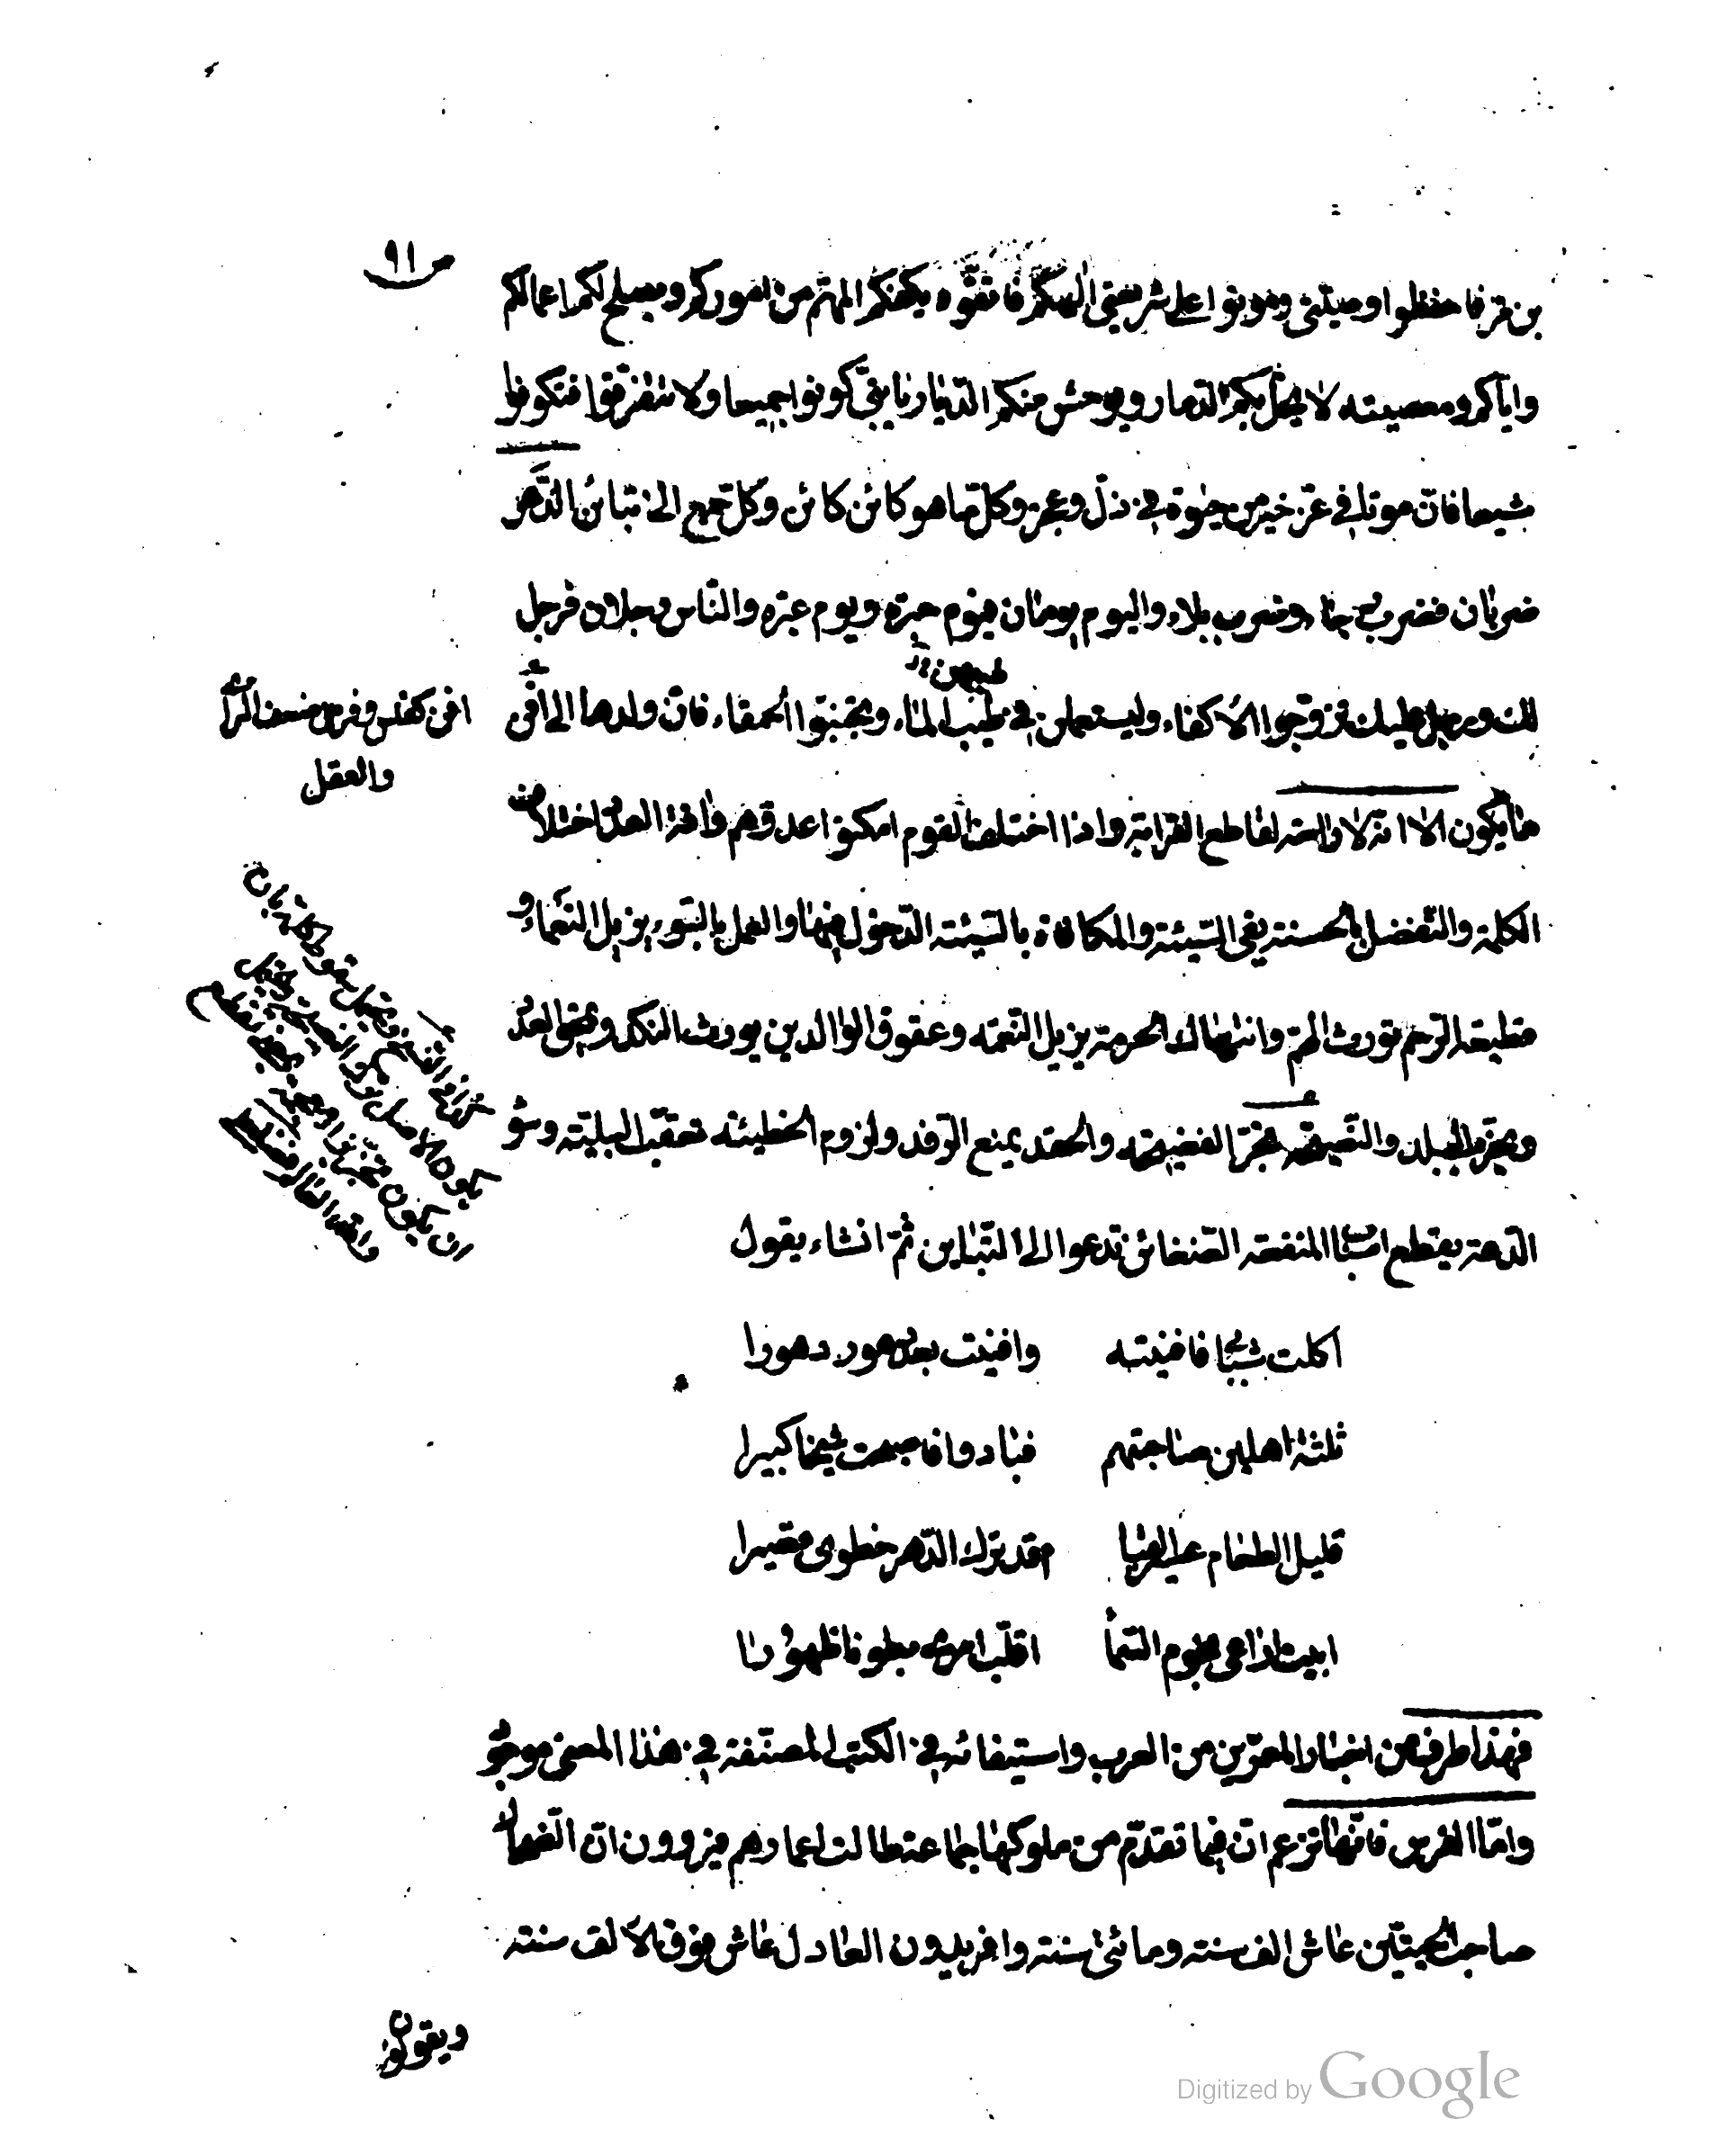 ٩١
بن مر فاحفظوا وصيتى وموتوا على شريعتى الهكم فاتقوه يكفكم المهم من اموركم ويصلح لكم اعمالكم
واياكم ومعصيته لا يحل بكم الدمار ويوحش منكم الديار يا بنى كونوا جميعا ولا تتفرقوا فتكونوا
شيعا فان موتا فى عز خير من حيوة فى ذل وعجز وكل ما هو كائن كائن وكل جمع الى تبائن الدهر
ضربان فضرب رجاء وضرب بلاء واليوم يومان فيوم حبرة ويوم عبرة والناس رجلان فرجل
لك ورجل عليك تزوجوا الاكفاء وليستعملن فى طيبهن الماء وتجنبوا الحمقاء فان ولدها الى افن
افن كفلس وفرس ضعف الراى
والعقل
ما يكون الا انه لا راحة لقاطع القرابة واذا اختلف القوم امكنوا عدوهم وافة العدد اختلاف
الكلمة والتفضل بالحسنة يقى السيئة والمكافاة بالسيئة الدخول فيها والعمل بالسوء يزيل النعماء و
قطيعة الرحم تورث الهم وانتهاك الحرمة يزيل النعمة وعقوق الوالدين يورث النكد ويمحق العدد
ويخرب البلد والنصيحة تجر الفضيحة والحقد يمنع الرفد ولزوم الخطيئة تعقب البلية وسوء
الدعة يقطع اسباب المنفعة الضغائن تدعوا الى التباين ثم انشاء يقول
اكلت شبابى فافنيته وافنيت بعد دهور دهورا
ثلثة اهلين صاحبتهم فبادوا فاصبحت شيخا كبيرا
قليل الطعام عسير القيام قد ترك الدهر خطوى قصيرا
ابيت اراعى نجوم السماء اقلب امرى بطونا ظهورا
فهذا طرف من اخبار المعمرين من العرب واستيفائه فى الكتب المصنفة فى هذا المعنى موجود
واما الفرس فانها تزعم ان فيما تقدم من ملوكها جماعة طالت اعمارهم فيروون ان الضحاك
صاحب الحيتين عاش الف سنة ومائتى سنة وافريدون العادل عاش فوق الالف سنة
ويقولون
Digitized by Google